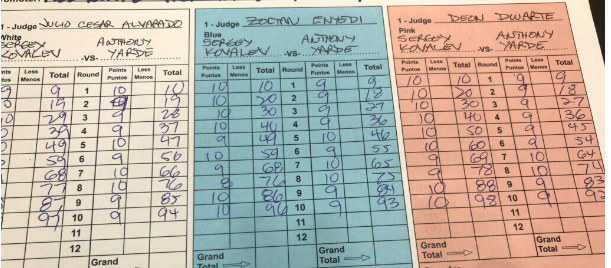 Judge JULIO CESAR ALVARADO
White
SERGEY ANTHONY
KOVALEV -VS- YARDE
Points Less Total Round Points Less Total
Puntos Menos Puntos Menos
9 9 1 10 10
10 19 2 9 19
10 29 3 9 28
10 39 4 9 37
10 49 5 10 47
10 59 6 9 56
9 68 7 10 66
9 77 8 10 76
10 87 9 9 85
10 97 10 9 94
11
12
Grand
1 - Judge ZOLTAN ENYEDI
Blue
SERGEY ANTHONY
KOVALEV -VS- YARDE
Points Less Total Round Points Less Total
Puntos Menos Puntos Menos
10 10 1 9 9
10 20 2 9 18
10 30 3 9 27
10 40 4 9 36
9 49 5 10 46
10 59 6 9 55
9 68 7 10 65
8 76 8 10 75
10 86 9 9 84
10 96 10 9 93
11
12
Grand Grand
Total Total
1 - Judge DEON DWARTE
Pink
SERGEY ANTHONY
KOVALEV -VS- YARDE
Points Less Total Round Points Less Total
Puntos Menos Puntos Menos
10 10 1 9 9
10 20 2 9 18
10 30 3 9 27
10 40 4 9 36
10 50 5 9 45
10 60 6 9 54
9 69 7 10 64
9 78 8 10 74
10 88 9 9 83
10 98 10 9 92
11
12
Grand Grand
Total Total